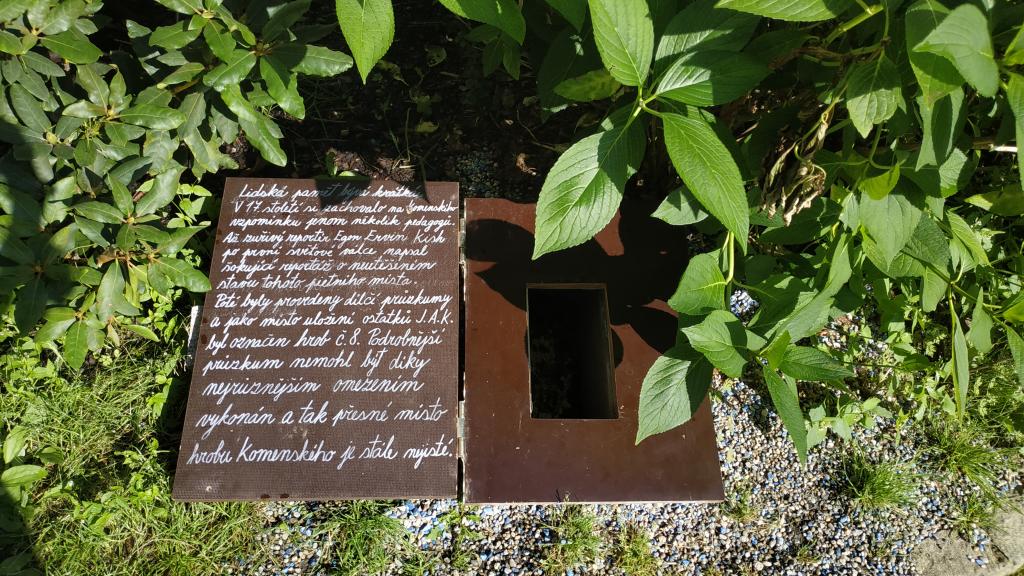 Lidská paměť bývá krátká.
V 17. století si zachovalo na Komenského
vzpomínku jenom několik pedagogů.
Až zuřivý reportér Egon Ervín Kish
po první světové válce napsal
šokující reportáž o neutěšeném
stavu tohoto pietního místa.
Poté byly provedeny dílčí průzkumy
a jako místo uložení ostatků J.A.K.
byl označen hrob č. 8. Podrobnější
průzkum nemohl být díky
nejrůznějším omezením
vykonán a tak přesné místo
hrobu Komenského je stále nejisté.